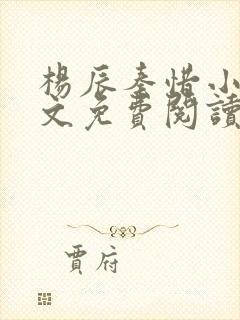 楊辰秦惜小
文免費閱讀
賈府